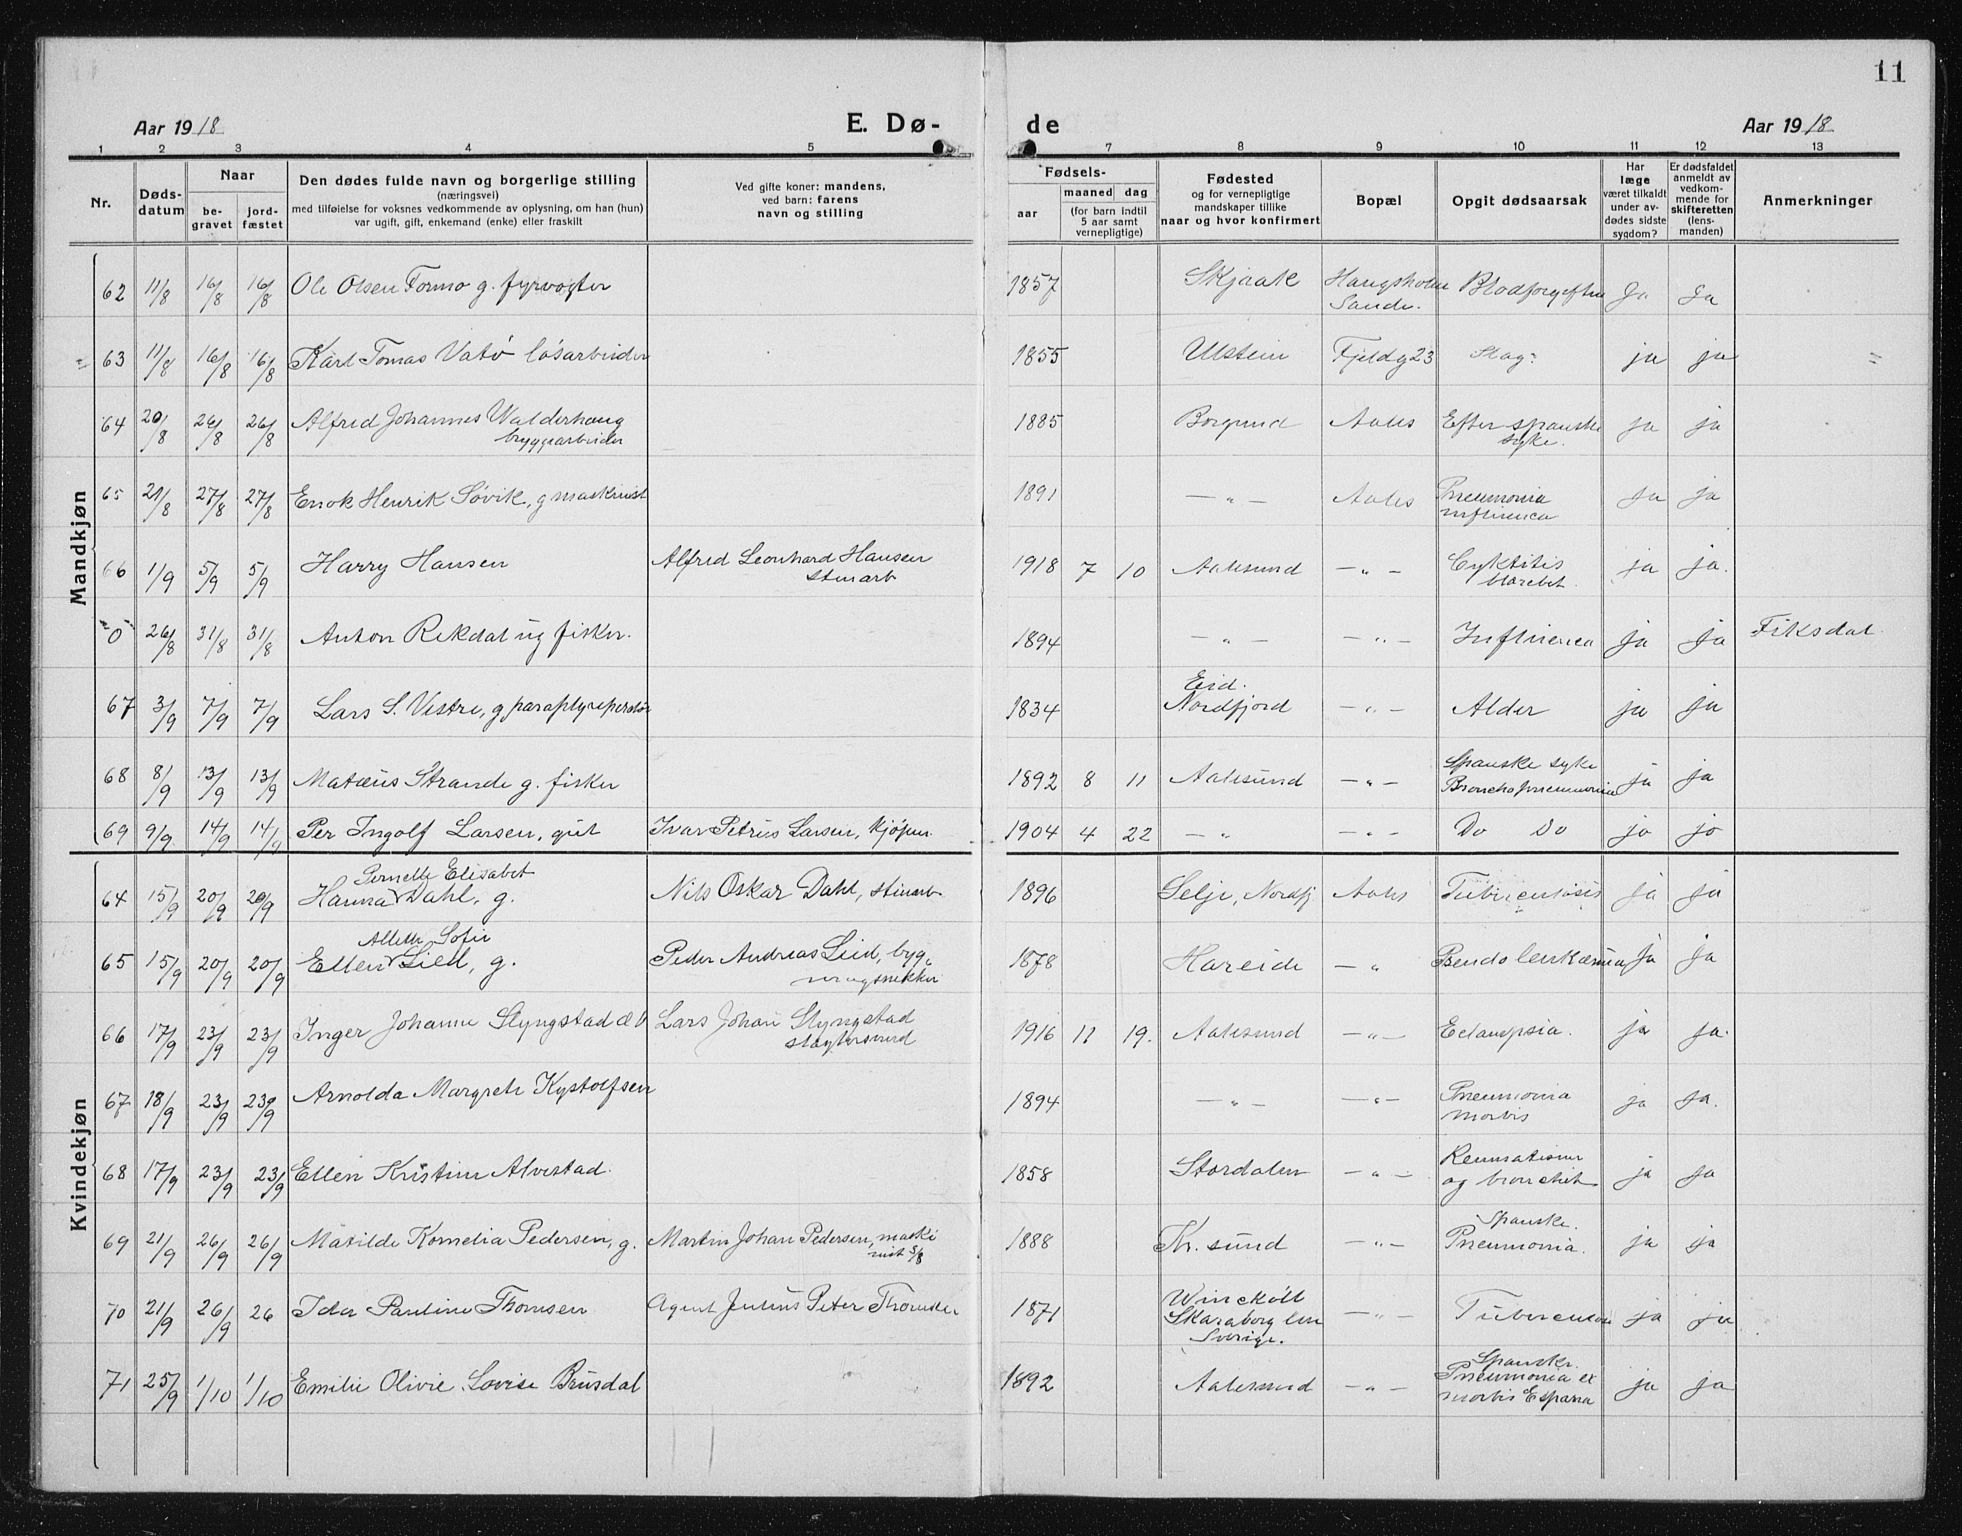 11
Aar 1918 E. Dø- de Aar 1918
1 2 3 4 5 7 8 9 10 11 12 13
Nr.
Døds-
datum
Naar
be-
gravet
jord-
fæstet
Den dødes fulde navn og borgerlige stilling
(næringsvei)
med tilføielse for voksnes vedkommende av oplysning, om han (hun)
var ugift, gift, enkemand (enke) eller fraskilt
Ved gifte koner: mandens,
ved barn: farens
navn og stilling
Fødsels-
aar
maaned dag
(for barn indtil
5 aar samt
vernepligtige)
Fødested
og for vernepligtige
mandskaper tillike
naar og hvor konfirmert
Bopæl
Opgit dødsaarsak
Har
læge
været tilkaldt
under av-
dødes sidste
sygdom?
Er dødsfaldet
anmeldt av
vedkom-
mende for
skifteretten
(lens-
manden)
Anmerkninger
Mandkjøn
62 11/8 16/8 16/8 Ole Olsen Formo g. fyrvogter 1857 Skjaak Haugsholm Sande. Blodforgiftn Ja Ja
63 11/8 16/8 16/8 Karl Tomas Vatø løsarbeider 1855 Ulstein Fjeldg 23 Slag ja ja
64 20/8 26/8 26/8 Alfred Johannes Walderhaug 1885 Borgund Aales Efter spanske ja ja
bryggearbeider syke.
65 21/8 27/8 27/8 Enok Henrik Søvik, g maskinist 1891 — „ — Aales Pneumonia Ja ja
influenca
66 1/9 5/9 5/9 Harry Hansen Alfred Leonhard Hansen 1918 7 10 Aalesund — „ — ja ja.
stenarb
0 26/8 31/8 31/8 Anton Rekdal ug fisker. 1894 — „ — — „ — Influenca ja Ja Fiksdal
67 3/9 7/9 7/9 Lars S. Vestre, g paraplyreperatør 1834 Eid. Nordfjord — „ — Alder ja ja
68 8/9 13/9 13/9 Matæus Strande g. fisker 1892 8 11 Aalesund — „ — Spanske syke ja ja
Bronchopneumonia
69 9/9 14/9 14/9 Per Ingolf Larsen, gut Ivar Petrus Larsen, kjøpm. 1904 4 22 — „ — „ — Do Do ja ja
Kvindekjøn
64 15/9 20/9 20/9 Hanna Pernelle Elisabet Dahl, g. Nils Oskar Dahl, stenarb 1896 Selje, Nordfj Aales Tuberculosis ja ja
65 15/9 20/9 20/9 Ellen Allette Sofie Lied, g. Peder Andreas Lied, byg- 1878 Hareide — „ Ja ja
ningsnekker
66 17/9 23/9 23/9 Inger Johanne Slyngstad Lars Johan Slyngstad 1916 11 19. Aalesund — „ — Eclampsia. ja ja.
slagtersvend
67 18/9 23/9 23/9 Arnolda Margrete Kystolfsen 1894 — „ — — „ — Pneumonia ja ja.
morbis
68 17/9 23/9 23/9 Ellen Kristine Alvestad. 1858 Stordalen — „ — Reumatisme ja ja
og bronchit
69 21/9 26/9 26/9 Matilde Kornelia Pedersen, g. Martin Johan Pedersen, maski 1888 Kr. sund — „ — Spanske. Pneumonia. ja ja
nist S/S
70 21/9 26/9 26 Ida Pauline Thomsen Agent Jentius Peter Thomsen 1871 Skaraborg len — „ — Tuberculose ja ja
Sverige.
71 25/9 1/10 1/10 Emilie Olivie Lovise Brusdal 1892 Aalesund — „ — Spanske. ja ja
Pneumonia ex
morbis Espana